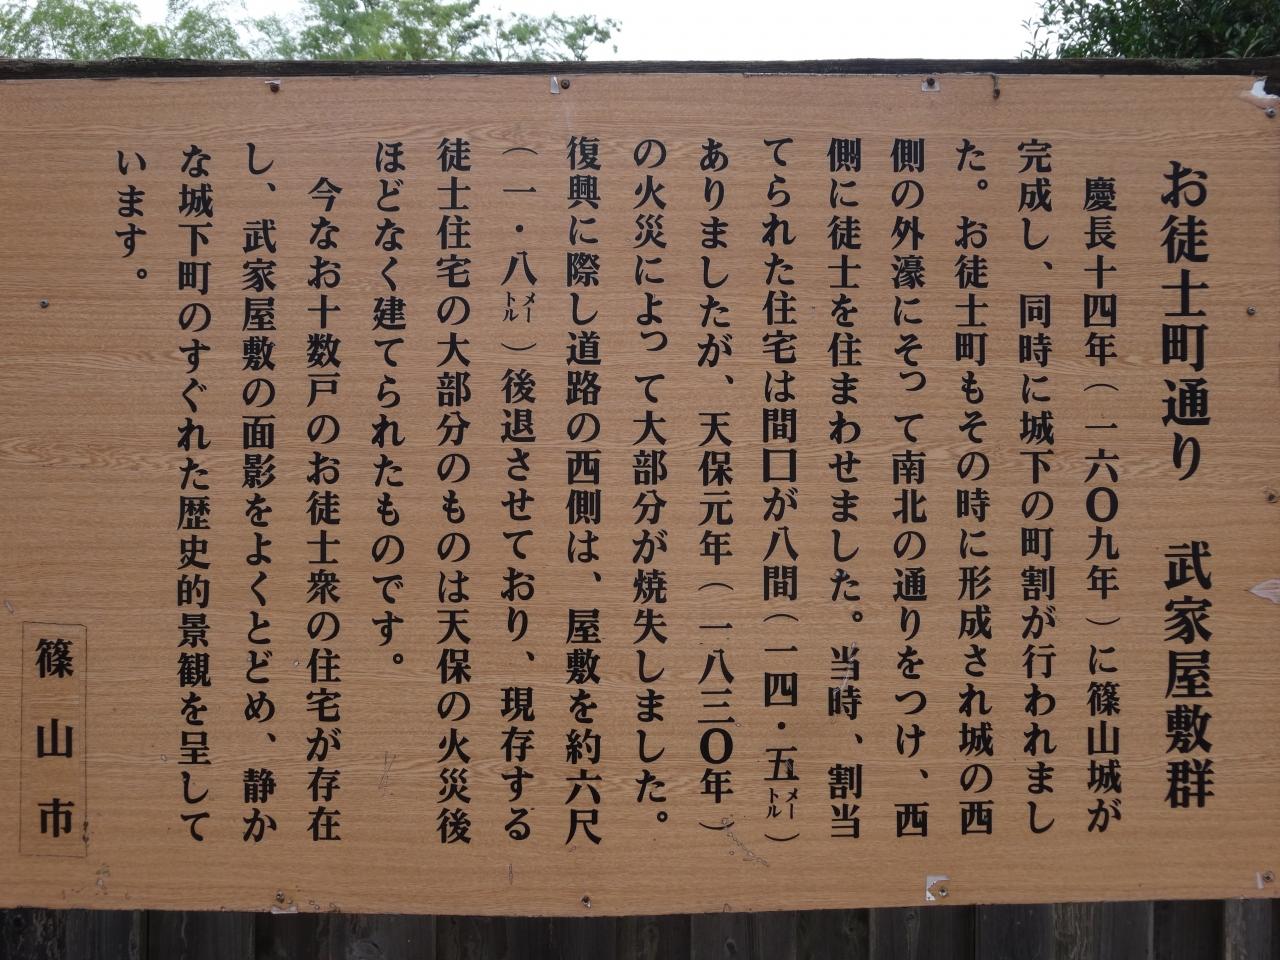 お徒士町通り　武家屋敷群
慶長十四年（一六〇九年）に篠山城が
完成し、同時に城下の町割が行われまし
た。お徒士町もその時に形成され城の西
側の外濠にそって南北の通りをつけ、西
側に徒士を住まわせました。当時、割当
てられた住宅は間口が八間（一四・五メートル）
ありましたが、天保元年（一八三〇年）
の火災によって大部分が焼失しました。
復興に際し道路の西側は、屋敷を約六尺
（一・八メートル）後退させており、現存する
徒士住宅の大部分のものは天保の火災後
ほどなく建てられたものです。
今なお十数戸のお徒士衆の住宅が存在
し、武家屋敷の面影をよくとどめ、静か
な城下町のすぐれた歴史的景観を呈して
います。
篠山市